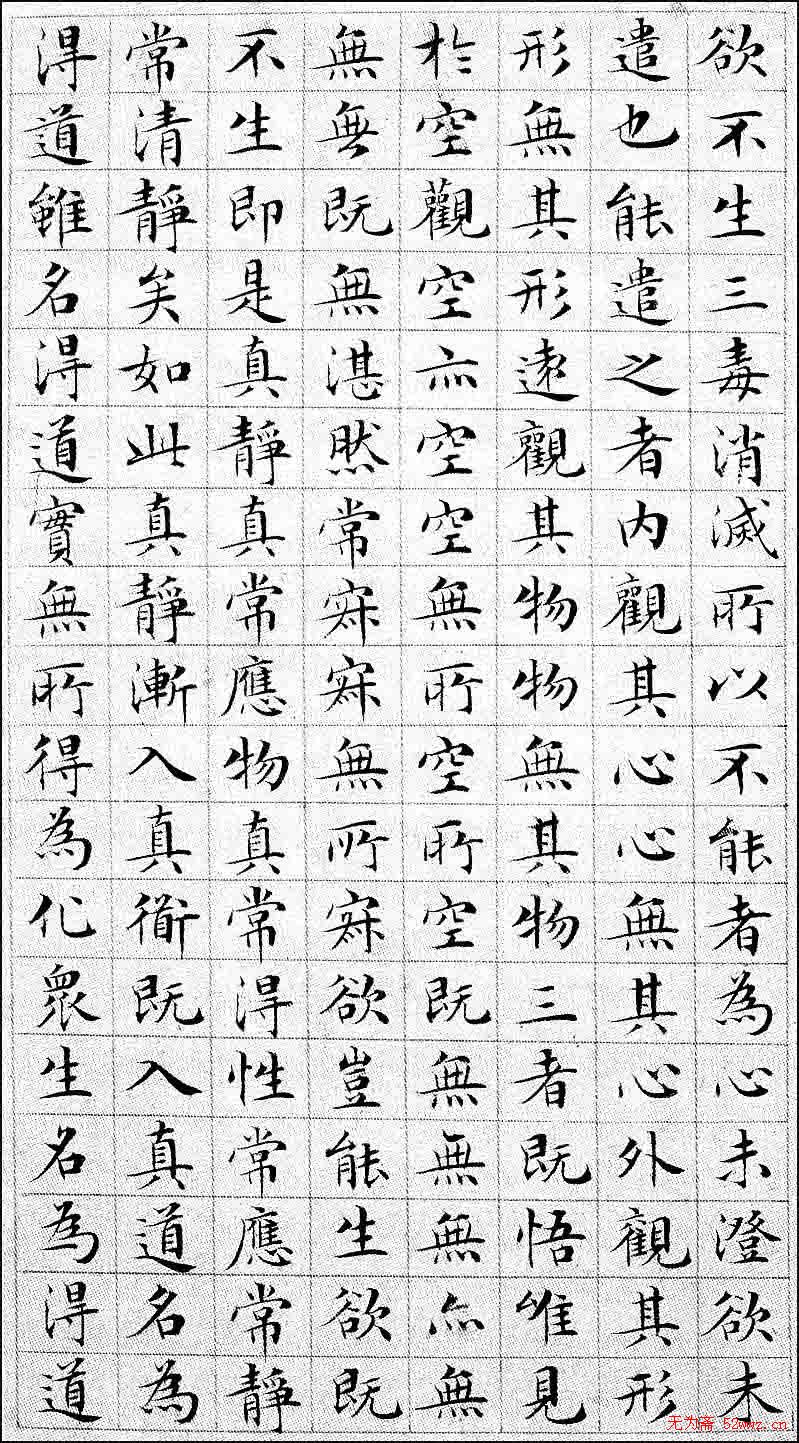 欲不生三毒消滅所以不能者為心未澄欲未
遣也能遣之者内觀其心心無其心外觀其形
形無其形遠觀其物物無其物三者既悟唯見
於空觀空亦空空無所空所空既無無無亦無
無無既無湛然常寂寂無所寂欲豈能生欲既
不生即是真靜真常應物真常得性常應常靜
常清靜矣如此真靜漸入真道既入真道名為
得道雖名得道實無所得為化眾生名為得道
无为斋 52wwz.cn